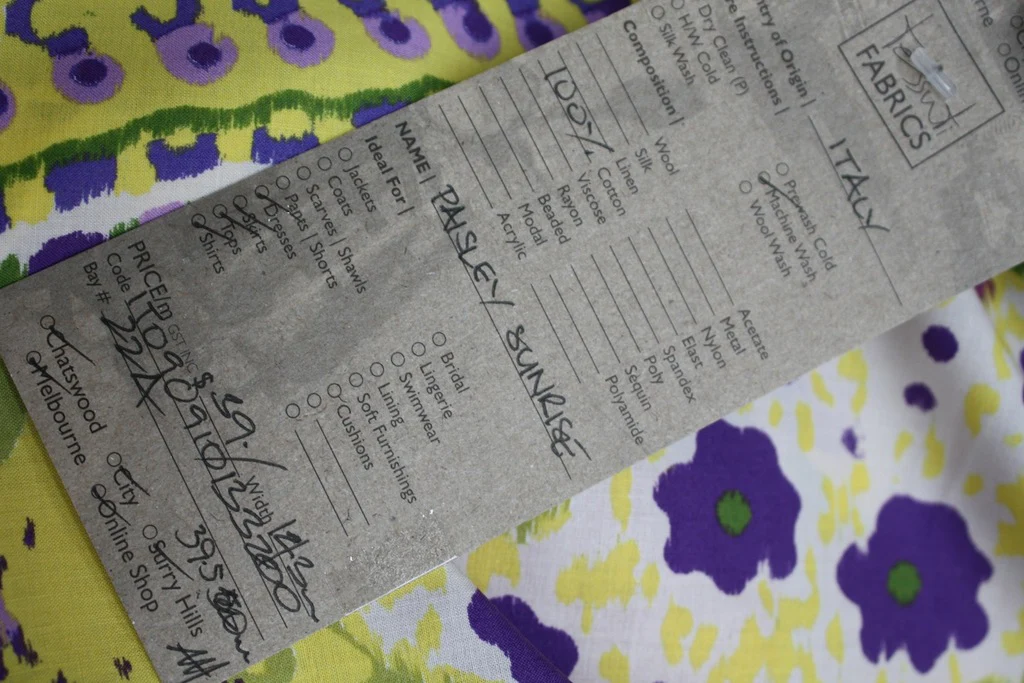 FABRICS
ntry of Origin | ITALY
re Instructions |
Dry Clean (P)
H/W Cold
Silk Wash
Prewash Cold
Machine Wash
Wool Wash
Composition |
Wool
Silk
Linen
100% Cotton
Viscose
Rayon
Beaded
Modal
Acrylic
Acetate
Metal
Nylon
Elast
Spandex
Poly
Sequin
Polyamide
NAME | PAISLEY SUNRISE
Ideal For |
Jackets
Coats
Scarves | Shawls
Pants | Shorts
Dresses
Skirts
Tops
Shirts
Bridal
Lingerie
Swimwear
Lining
Soft Furnishings
Cushions
PRICE/m GST INC $ 39.- Width 143cm
Code
Bay # 22A
Chatswood
City
Surry Hills
Melbourne
Online Shop